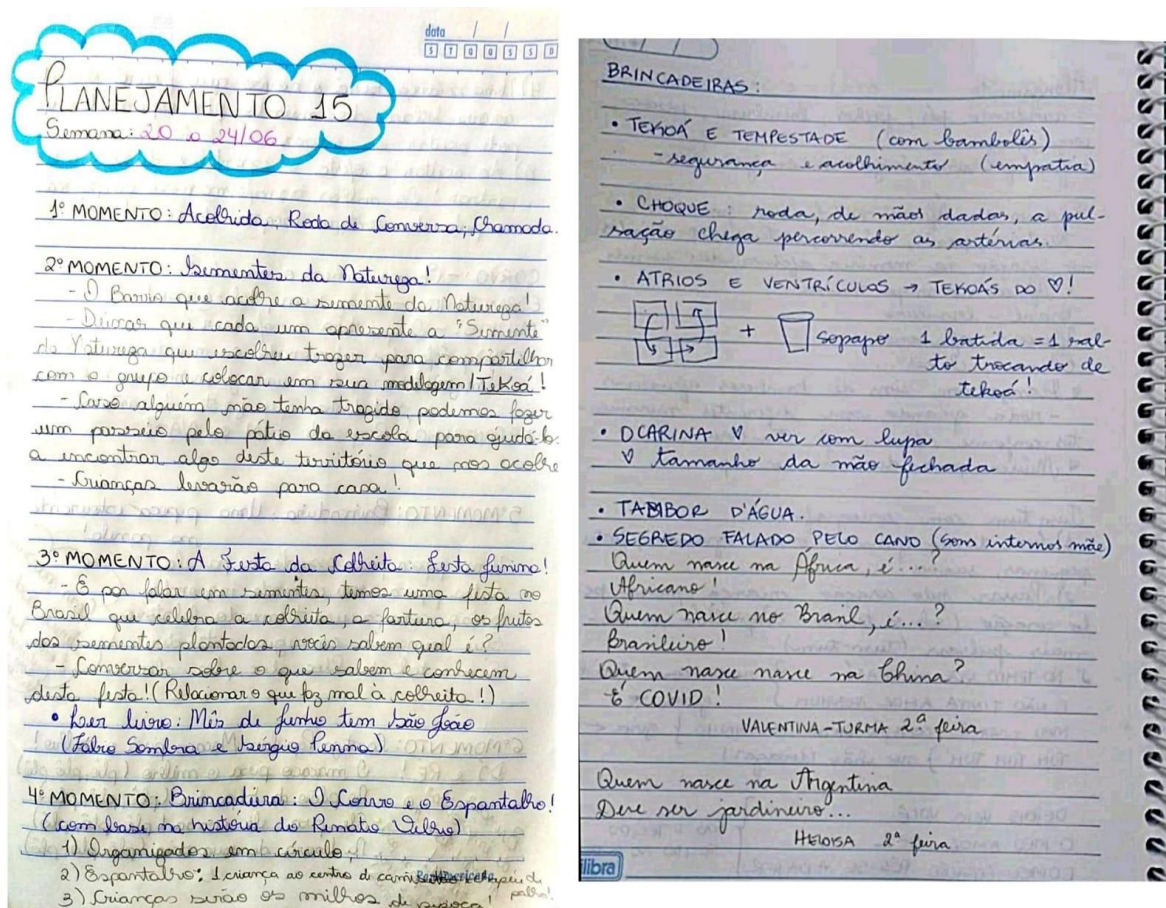 data / /
S T Q Q S S D
PLANEJAMENTO 15
Semana: 20 a 24/06
1º MOMENTO: Acolhida, Roda de Conversa, Chamada.
2º MOMENTO: Sementes da Natureza!
- O Barro que acolhe a semente da Natureza!
- Deixar que cada um apresente a "Semente"
da Natureza que escolheu trazer para compartilhar
com o grupo e colocar em sua modelagem/Tekoá!
- Caso alguém não tenha trazido, podemos fazer
um passeio pelo pátio da escola para ajudá-lo
a encontrar algo deste território que nos acolhe
- Crianças levarão para casa!
3º MOMENTO: A Festa da Colheita: Festa Junina!
- E por falar em sementes, temos uma festa no
Brasil que celebra a colheita, a fartura, os frutos
das sementes plantadas, vocês sabem qual é?
- Conversar sobre o que sabem e conhecem
desta festa! (Relacionar o que faz mal à colheita!)
• Ler livro: Mês de Junho tem São João
(Fábio Sombra e Sérgio Penna)
4º MOMENTO: Brincadeira: O Corvo e o Espantalho!
(com base na história do Renato Velho)
1) Organizados em círculo;
2) Espantalho: 1 criança ao centro de chapéu de
palha!
3) Crianças serão os milhos de pipoca!
BRINCADEIRAS:
• TEKOÁ E TEMPESTADE (com bambolês)
- segurança e acolhimento (empatia)
• CHOQUE: roda, de mãos dadas, a pul-
sação chega percorrendo as artérias.
• ATRIOS E VENTRÍCULOS → TEKOÁS DO ♡!
+ sopapo 1 batida = 1 sal-
to trocando de
tekoá!
• OCARINA ♡ ver com lupa
♡ tamanho da mão fechada
• TAMBOR D'ÁGUA.
• SEGREDO FALADO PELO CANO (sons internos mãe)
Quem nasce na África, é...?
Africano!
Quem nasce no Brasil, é...?
Brasileiro!
Quem nasce nasce na China?
É COVID!
VALENTINA - TURMA 2ª feira
Quem nasce na Argentina
Deve ser jardineiro...
HELOISA 2ª feira
tilibra